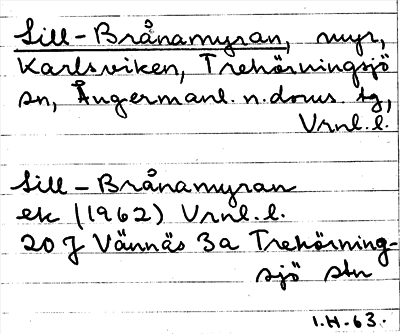 Lill-Brånamyran, myr,
Karlsviken, Trehörningsjö
sn, Ångermanl. n. doms. tg,
Vrnl. l.
Lill-Brånamyran
ek (1962) Vrnl. l.
20 J Vännäs 3a Trehörning-
sjö stn
I.H-63.